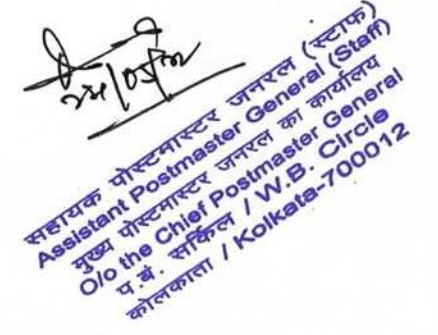 सहायक पोस्टमास्टर जनरल (स्टाफ)
Assistant Postmaster General (Staff)
मुख्य पोस्टमास्टर जनरल का कार्यालय
O/o the Chief Postmaster General
प.बं. सर्किल / W.B. Circle
कोलकाता / Kolkata-700012